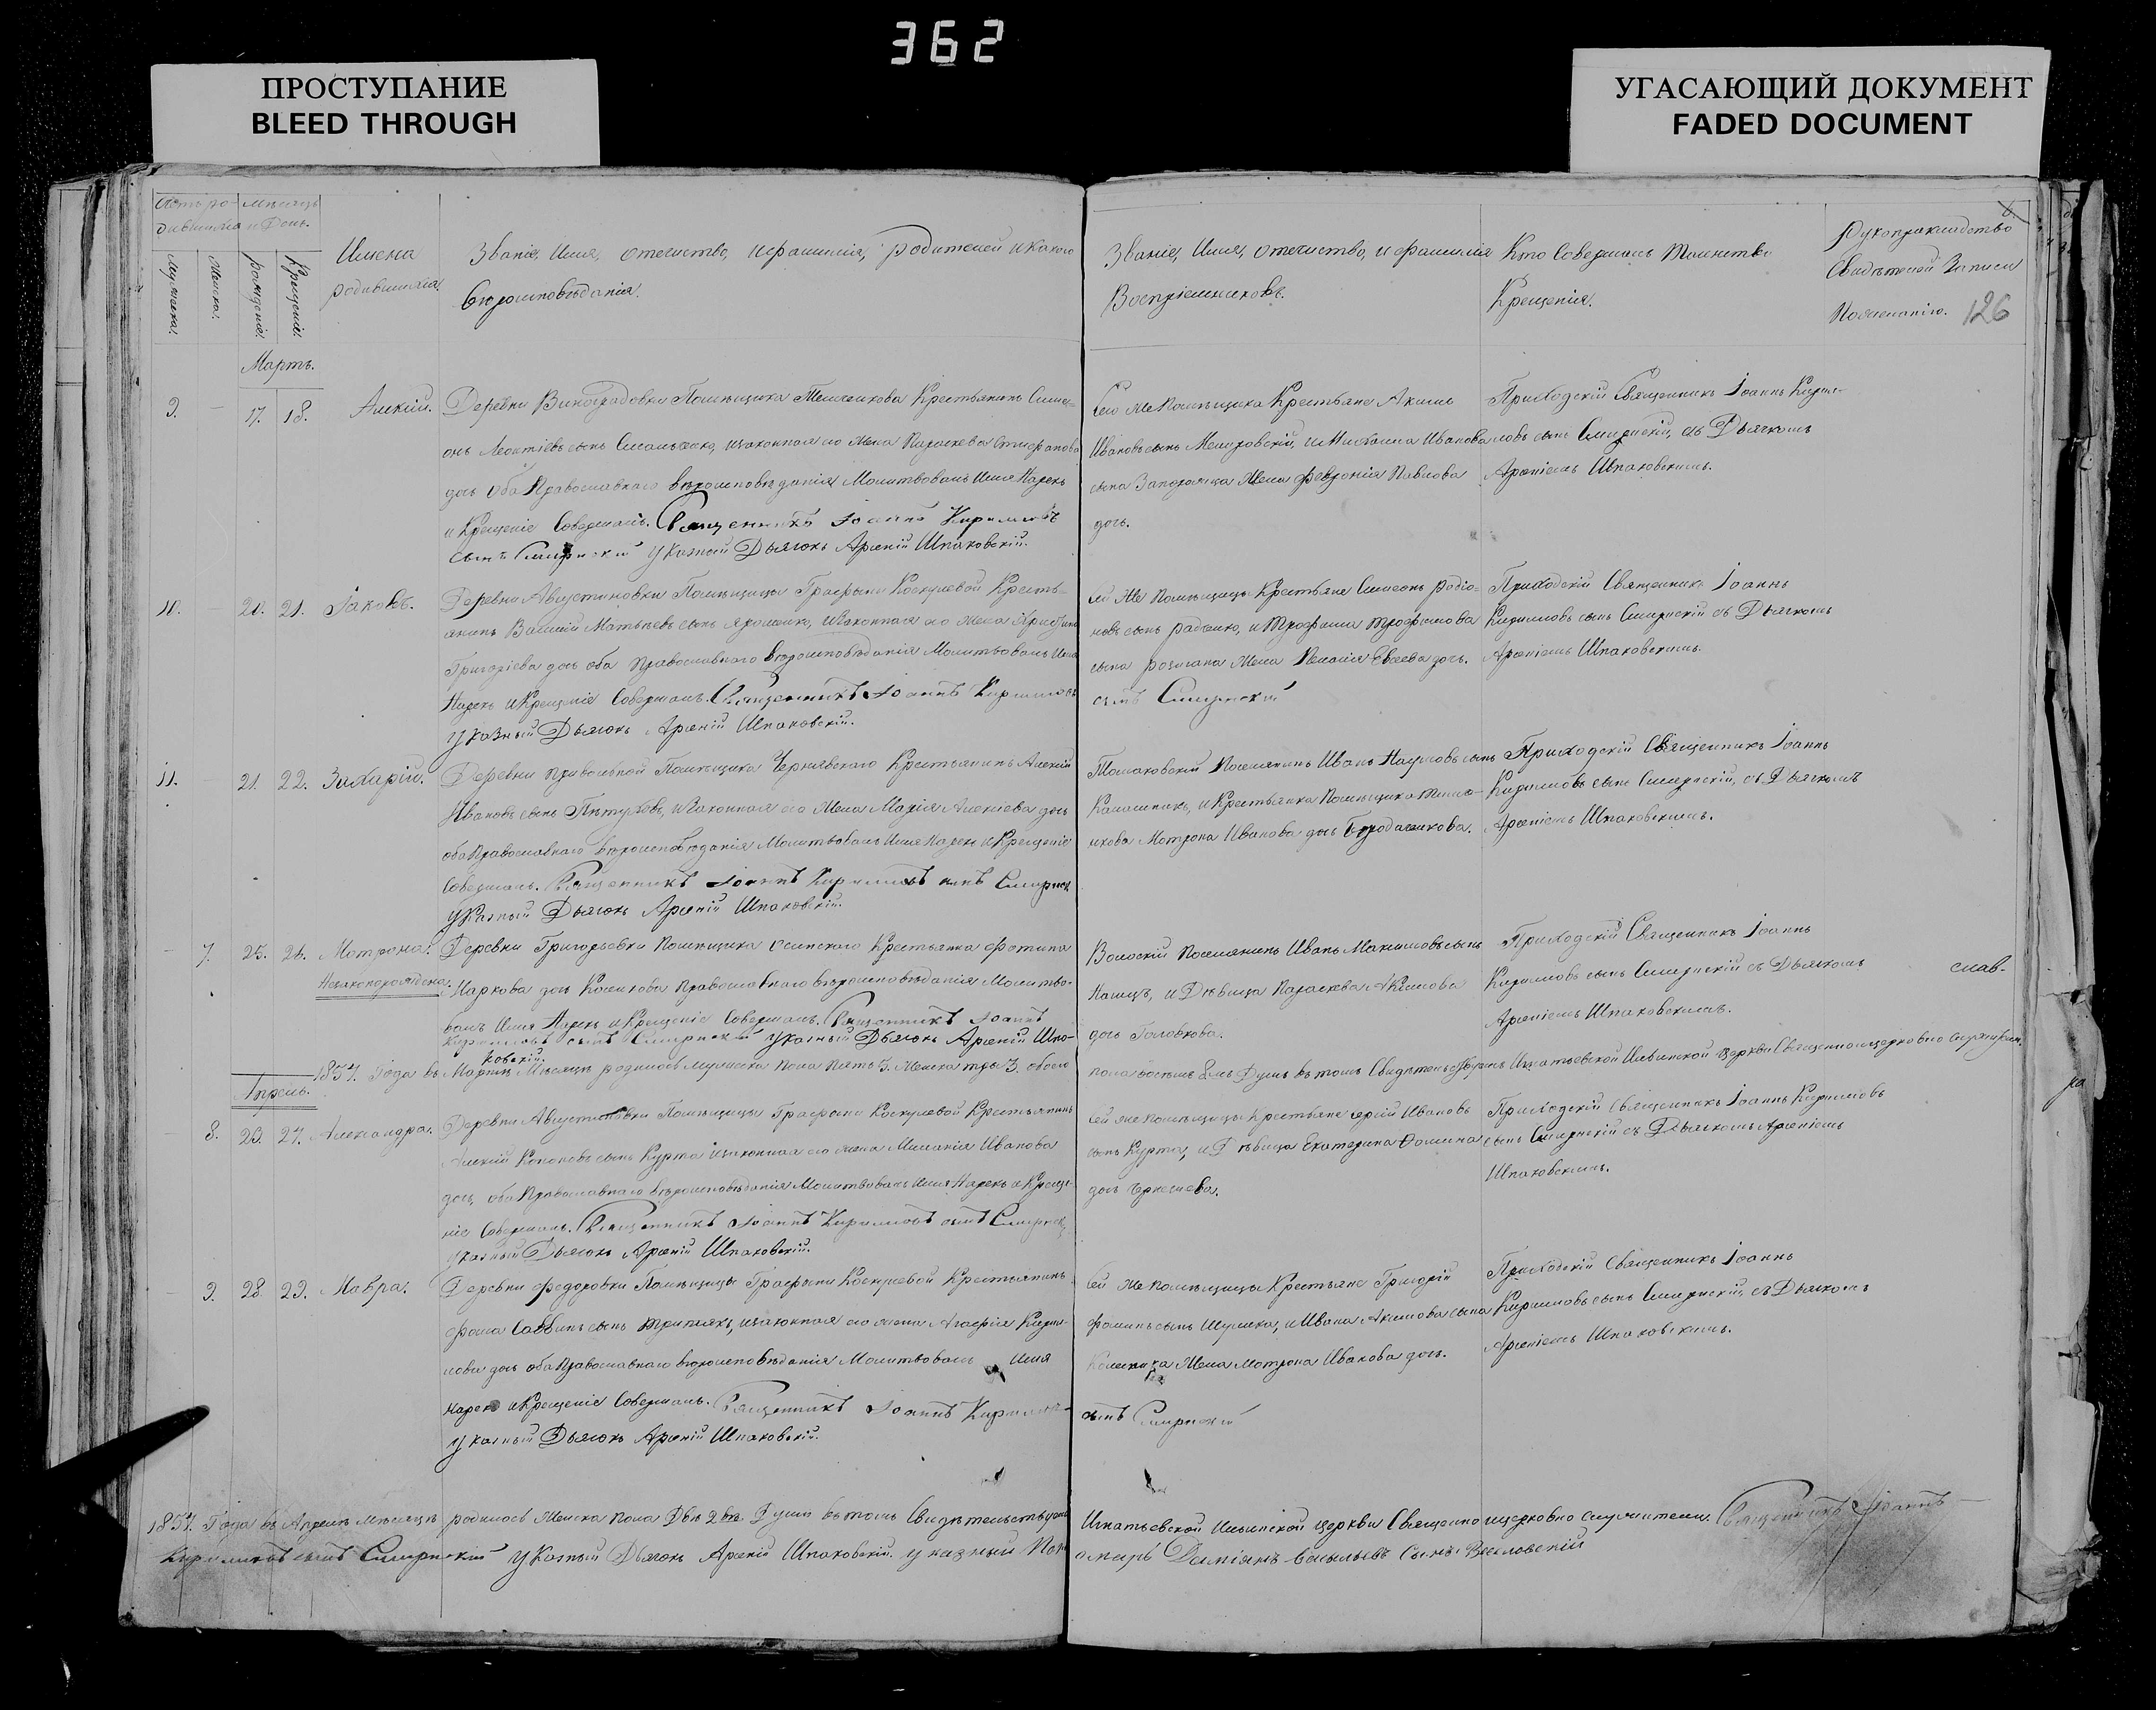 362
ПРОСТУПАНИЕ
BLEED THROUGH
УГАСАЮЩИЙ ДОКУМЕНТ
FADED DOCUMENT
Счетъ ро- Мѣсяцъ
дившихся и День.
Мужеска.
Женска.
рожденія.
Крещенія.
Имена
родившихся.
Званіе, Имя, отечиство, и фамилія, родителей и какого
вѣроисповѣданія.
Званіе, Имя, отечиство, и фамилія
Воспріемниковъ.
Кто Совершалъ Таинство
Крещенія.
рукоприкладство
Свидѣтелей Записи
По желанію. 126
Мартъ.
9. — 17. 18. Алексій.
Деревни Виноградовки Помѣщика Крестьянинъ Симе-
онъ Леонтіевъ сынъ и законная его жена Параскева Стифанова
дочь оба Православнаго вѣроисповѣданія Молитвовалъ Имя Нарекъ
и Крещеніе Совершалъ. Священникъ Іоаннъ Кириловъ
сынъ Смирнскій Указный Дьячокъ Арсеній Шпаковскій.
Сего же Помѣщика Крестьяне Акимъ
Ивановъ сынъ и Михаила Иванова
сына Запорожца Жена Февронія Павлова
дочь.
Приходскій Священникъ Іоаннъ Кири-
ловъ сынъ Смирнскій, съ Дьячкомъ
Арсеніемъ Шпаковскимъ.
10. 20. 21. Іаковъ.
Деревни Августиновки Помѣщицы Графини Коскулевой Кресть-
янинъ Василій Матвѣевъ сынъ Ярошенко, и Законная его Жена
Григоріева дочь оба Православнаго вѣроисповѣданія Молитвовалъ Имя
Нарекъ и Крещеніе Совершалъ. Священникъ Іоаннъ Кириловъ
Указный Дьячокъ Арсеній Шпаковскій.
Сей Же Помѣщицы Крестьяне Симеонъ Родіо-
новъ сынъ Радченко, и Трофима Трофимова
сына Жена Пелагія дочь.
сынъ Смирнскій
Приходскій Священникъ Іоаннъ
Кириловъ сынъ Смирнскій съ Дьячкомъ
Арсеніемъ Шпаковскимъ.
11. 21. 22. Захарій.
Деревни Привольной Помѣщика Чернявскаго Крестьянинъ Алексій
Ивановъ сынъ Пѣтуховъ, и Законная его Жена Марія Алексіева дочь
оба Православнаго вѣроисповѣданія Молитвовалъ Имя Нарекъ и Крещеніе
Совершалъ. Священникъ Іоаннъ Кириловъ сынъ Смирнск
Указный Дьячокъ Арсеній Шпаковскій.
Томаковскій Поселянинъ Иванъ Наумовъ сынъ
Калашникъ, и Крестьянка Помѣщика
Мотрона Иванова дочь
Приходскій Священникъ Іоаннъ
Кириловъ сынъ Смирнскій, съ Дьячкомъ
Арсеніемъ Шпаковскимъ.
— 7. 25. 26. Мотрона.
Незаконорождена.
Деревни Григорьевки Помѣщика Осипского Крестьянка Фотина
Маркова дочь Православнаго вѣроисповѣданія Молитво-
валъ Имя Нарекъ и Крещеніе Совершалъ. Священникъ Іоаннъ
Кириловъ сынъ Смирнскій Указный Дьячокъ Арсеній Шпа-
ковскій.
Волоскій Поселянинъ Иванъ Максимовъ сынъ
и Дѣвица Параскева Акимова
дочь Головкова.
Приходскій Священникъ Іоаннъ
Кириловъ сынъ Смирнскій съ Дьячкомъ
Арсеніемъ Шпаковскимъ.
1857. Года въ Мартѣ Мѣсяцѣ родилось Мужеска Пола Пять 5. Женска три 3. обоего
пола восемь 8мь Душъ въ томъ Свидѣтельствуемъ Игнатьевской Ильинской церкви Священно и церковно служители.
Апрель.
— 8. 23. 27. Александра.
Деревни Августиновки Помѣщицы Графини Коскулевой Крестьянинъ
Алексій Кононовъ сынъ Курта и законная его жена Миланія Иванова
дочь, оба Православнаго вѣроисповѣданія Молитвовалъ Имя Нарекъ и Креще-
ніе Совершалъ. Священникъ Іоаннъ Кириловъ сынъ Смирнск
Указный Дьячокъ Арсеній Шпаковскій.
Сей же Помѣщицы Крестьяне Юрій Ивановъ
сынъ Курта, и Дѣвица Екатерина Фомина
дочь
Приходскій Священникъ Іоаннъ Кириловъ
сынъ Смирнскій съ Дьячкомъ Арсеніемъ
Шпаковскимъ.
— 9. 28. 29. Мавра.
Деревни Федоровки Помѣщицы Графини Коскулевой Крестьянинъ
Фома Саввинъ сынъ и законная его жена Агафія Кири-
лова дочь оба Православнаго вѣроисповѣданія Молитвовалъ Имя
нарекъ и Крещеніе Совершалъ. Священникъ Іоаннъ Кирилов
Указный Дьячокъ Арсеній Шпаковскій.
Сей Же Помѣщицы Крестьяне Григорій
Фоминъ сынъ и Ивана Акимова сына
Жена Мотрона Иванова дочь.
сынъ Смирнскій
Приходскій Священникъ Іоаннъ
Кириловъ сынъ Смирнскій, съ Дьячкомъ
Арсеніемъ Шпаковскимъ.
1857. Года въ Апрелѣ мѣсяцѣ родилось Женска пола Двѣ 2вѣ Души въ томъ Свидѣтельствуемъ Игнатьевской Ильинской Церкви Священно и церковно служители. Священникъ Іоаннъ
Кириловъ сынъ Смирнскій Указный Дьячокъ Арсеній Шпаковскій. указный Пономарь Даміянъ Васильевъ Сынъ